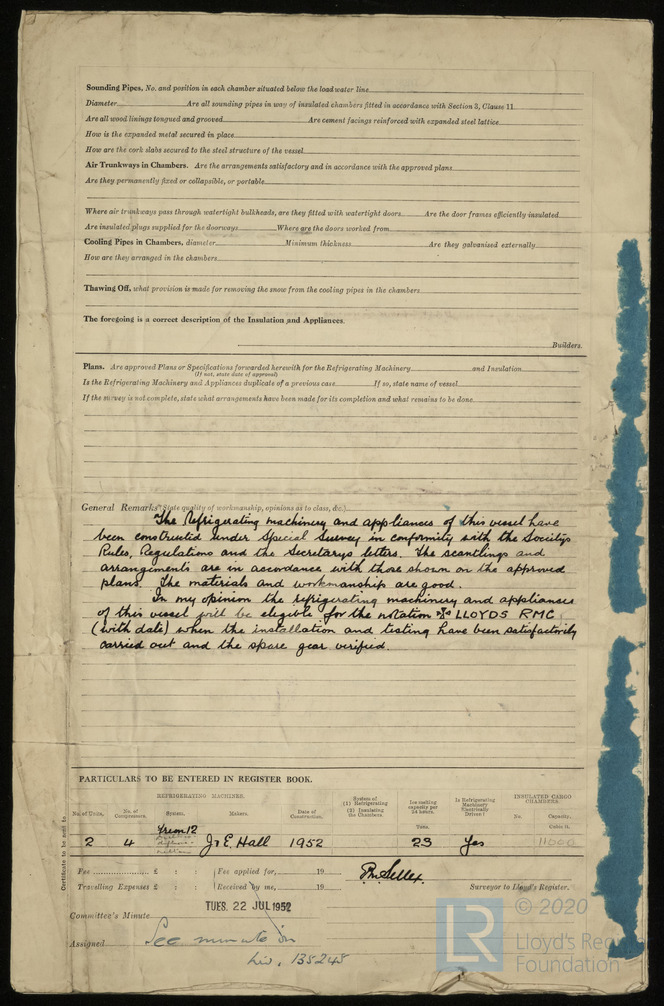 Sounding Pipes, No. and position in each chamber situated below the load water line
Diameter Are all sounding pipes in way of insulated chambers fitted in accordance with Section 3, Clause 11
Are all wood linings tongued and grooved Are cement facings reinforced with expanded steel lattice
How is the expanded metal secured in place
How are the cork slabs secured to the steel structure of the vessel
Air Trunkways in Chambers. Are the arrangements satisfactory and in accordance with the approved plans
Are they permanently fixed or collapsible, or portable
Where air trunkways pass through watertight bulkheads, are they fitted with watertight doors Are the door frames efficiently insulated
Are insulated plugs supplied for the doorways Where are the doors worked from
Cooling Pipes in Chambers, diameter Minimum thickness Are they galvanised externally
How are they arranged in the chambers
Thawing Off, what provision is made for removing the snow from the cooling pipes in the chambers
The foregoing is a correct description of the Insulation and Appliances.
Builders.
Plans. Are approved Plans or Specifications forwarded herewith for the Refrigerating Machinery and Insulation
(If not, state date of approval)
Is the Refrigerating Machinery and Appliances duplicate of a previous case If so, state name of vessel
If the survey is not complete, state what arrangements have been made for its completion and what remains to be done
General Remarks (State quality of workmanship, opinions as to class, &c.)
The Refrigerating machinery and appliances of this vessel have
been constructed under Special Survey in conformity with the Societys
Rules, Regulations and the Secretarys letters. The scantlings and
arrangements are in accordance with those shown on the approved
plans. The materials and workmanship are good.
In my opinion the refrigerating machinery and appliances
of this vessel will be eligible for the notation ✠ LLOYDS RMC
(with date) when the installation and testing have been satisfactorily
carried out and the spare gear verified.
PARTICULARS TO BE ENTERED IN REGISTER BOOK.
REFRIGERATING MACHINES.
No. of Units. No. of Compressors. System. Makers. Date of Construction. System of (1) Refrigerating (2) Insulating the Chambers. Ice making capacity per 24 hours. Tons. Is Refrigerating Machinery Electrically Driven? INSULATED CARGO CHAMBERS. No. Capacity. Cubic ft.
Freon 12
2 4 J & E. Hall 1952 23 Yes
Certificate to be sent to
Fee £ : : Fee applied for, 19
Travelling Expenses £ : : Received by me, 19 Surveyor to Lloyd's Register.
TUES. 22 JUL 1952
Committee's Minute
Assigned See minute on
Liv. 135245
© 2020
LR
Lloyd's Register
Foundation